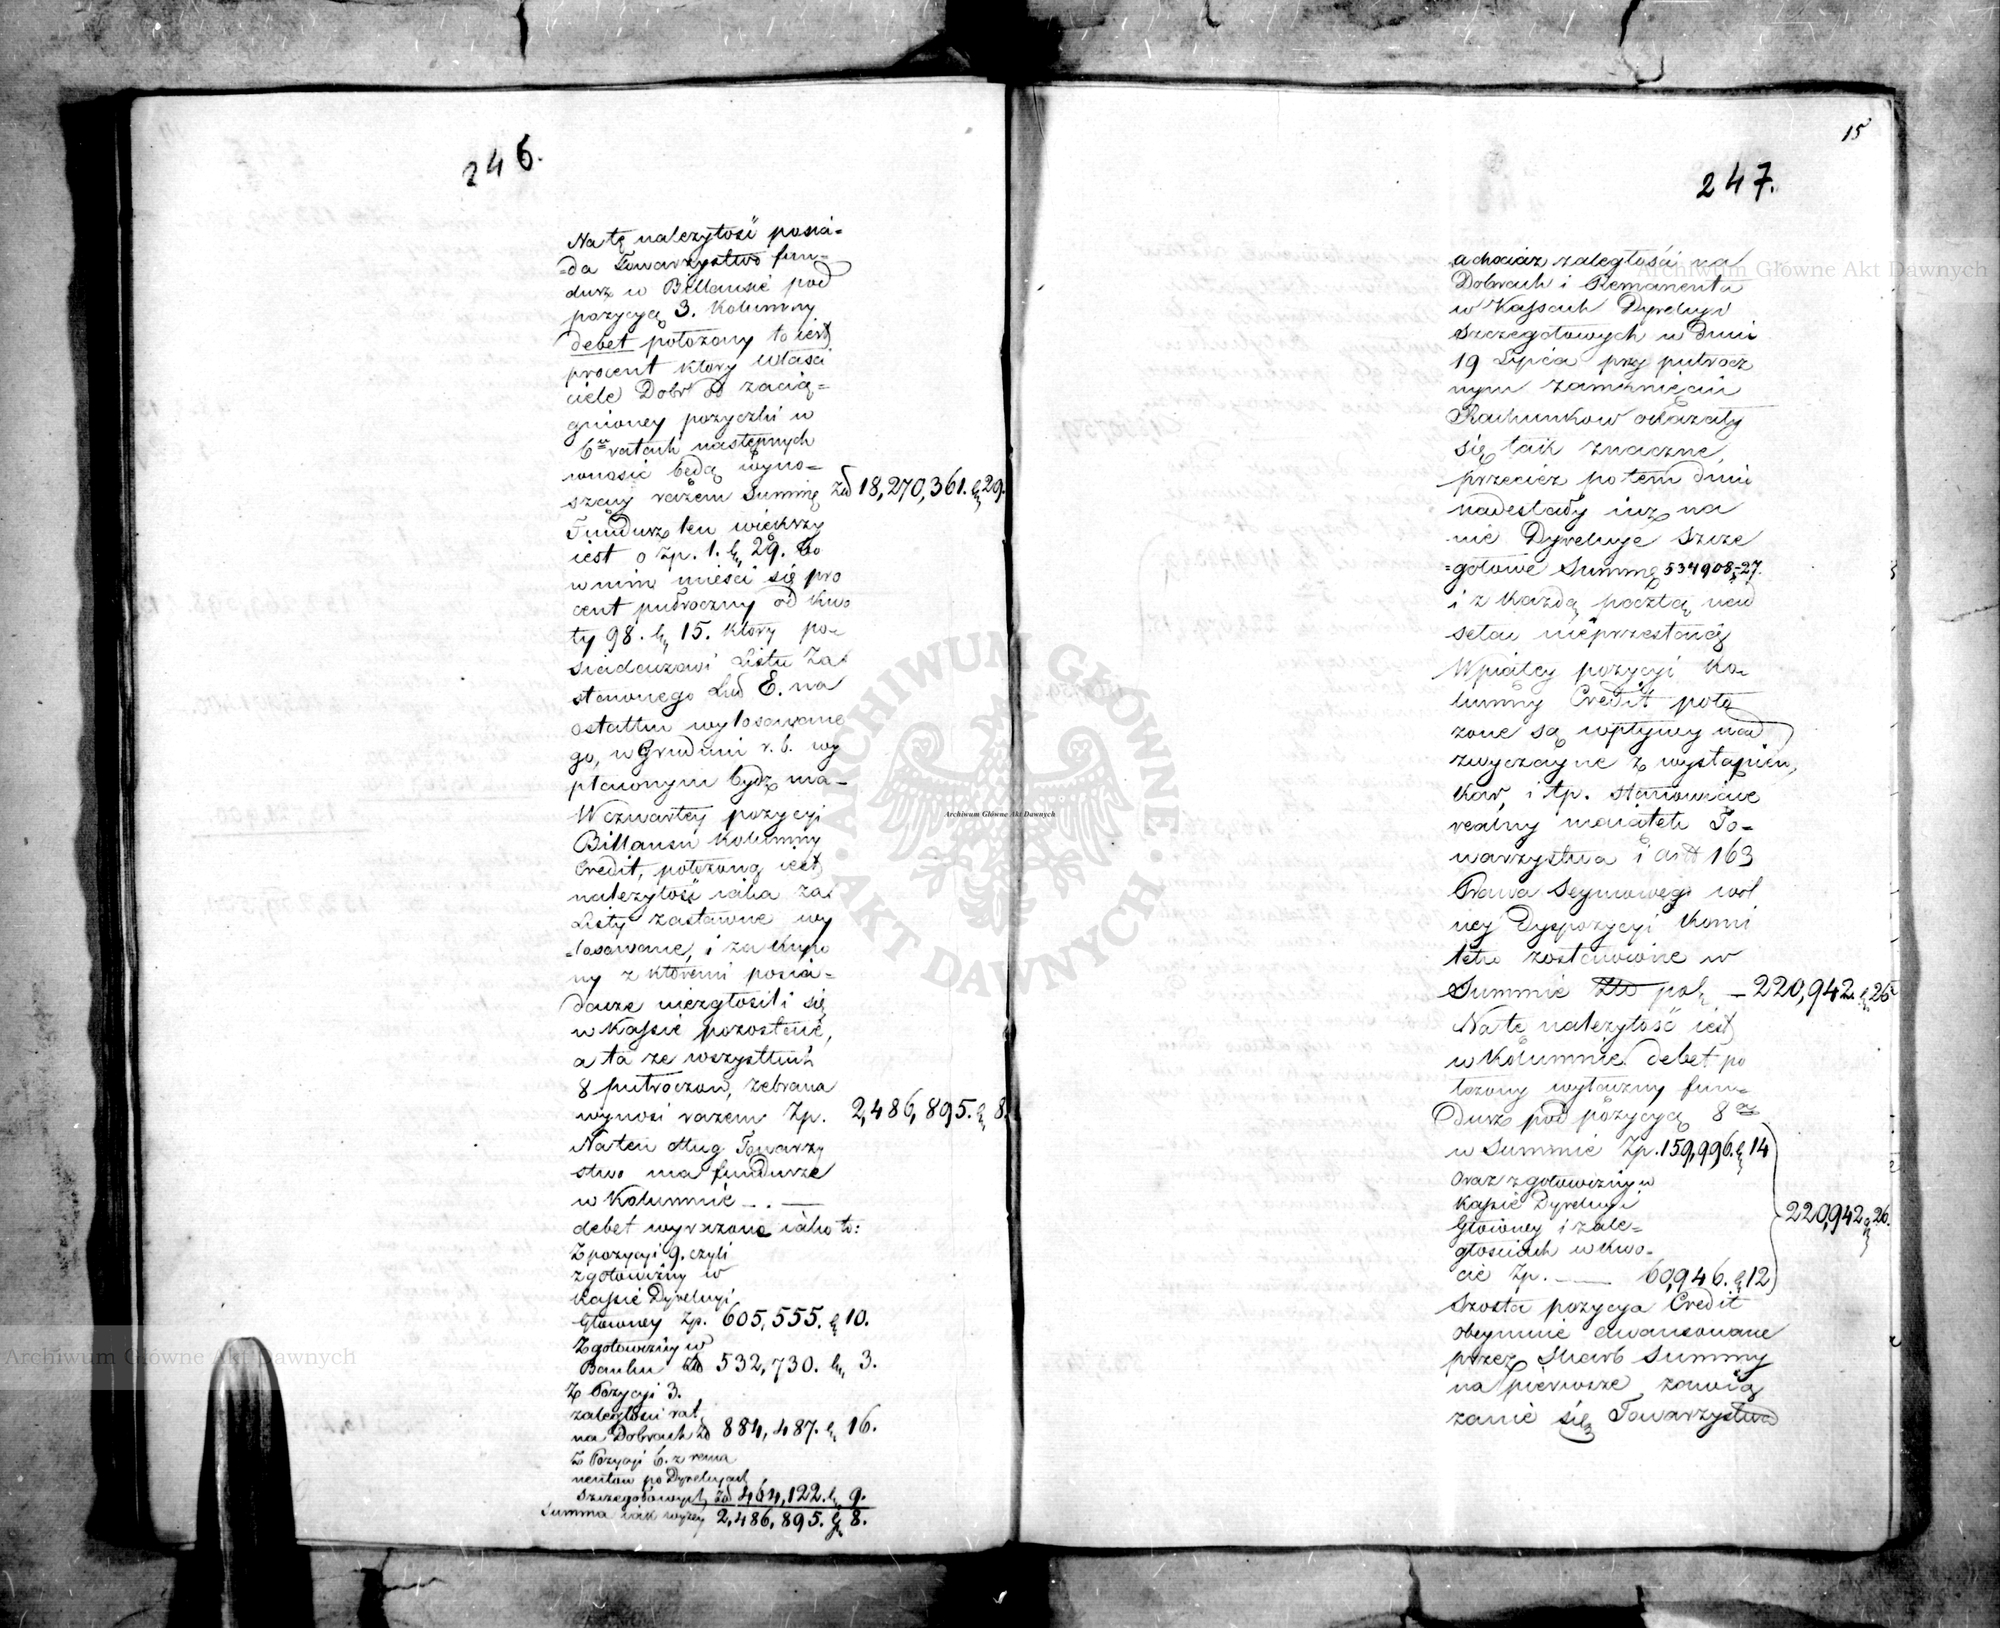 246.
Na tę należytość posia=
=da Towarzystwo fun=
dusz w Billansie pod
pozycyą 3. Kolumny
debet położony to iest
procent który właści
ciele Dobr od zacią=
gnioney pożyczki w
ratach następnych
wnosić będą wyno=
szący razem Summę Zł 18,270,361. g 29.
Fundusz ten większy
iest o Zp. 1. g 29. bo
w nim mieści się pro
cent pułroczny od kwo
ty 98. g 15. który po=
siadaczowi Listu Za=
stawnego Lit E. na
ostatku wylosowane
go, w Grudniu r. b. wy
płaconym bydź ma_
W czwartey pozycyi
Billansu Kolumny
Credit, położoną iest
należytość iaka za
Listy zastawne wy
=losowane, i za kupo
ny z któremi posia=
dacze niezgłosili się
w Kassie pozostaie,
a ta ze wszystkich
8 pułroczow, zebrana
wynosi razem Zp. 2,486,895. g 8.
Na ten dług Towarzy
stwo ma fundusze
w Kolumnie _ . __
debet wyrażone iako to:
Z pozycyi 9. czyli
z gotowizny w
Kassie Dyrekcyi
Główney Zp. 605,555. g 10.
Z gotowizny w
Banku Zł 532,730. g 3.
Z Pozycyi 3.
zaległości rat
na Dobrach Zł 884,487. g 16.
Z Pozycyi 6. z rema
nentow po Dyrekcyach
Szczegółowych Zł 464,122. g 9.
Summa iak wyżey 2,486,895. g 8.
15
247.
a chociaz zaległości na
Dobrach i Remanenta
w Kassach Dyrekcyi
Szczegołowych w dniu
19 Lipca przy pułrocz
nym zamknięciu
Rachunkow okazały
się tak znaczne,
przecież po tem dniu
nadesłały iuż na
nie Dyrekcye Szcze
=gołowe Summę 534908,=27.
i z każdą pocztą nad
setaią nieprzestannie
W piątey pozycyi Ko=
lumny Credit poło
żone są wpływy nad
zwyczayne z wystąpień,
kar, i tp. stanowiące
realny maiątek To=
warzystwa i artt 163
Prawa Seymowego wol
ney Dyspozycyi Komi
tetu zostawione w
Summie Zło pol: _ 220,942. g 26
Na tę należytość iest
w Kolumnie debet po
łożony wyłączny fun=
dusz pod pozycyą 8ą
w Summie Zp. 159,996. g 14
oraz z gotowizny w
Kassie Dyrekcyi
Główney i zale=
głościach w kwo=
cie Zp. ___ 60,946. g 12
220,942 g 26.
Szosta pozycya Credit
obeymuie awansowane
przez Skarb Summy
na pierwsze zawią
zanie się Towarzystwa
Archiwum Główne Akt Dawnych
Archiwum Główne Akt Dawnych
Archiwum Główne Akt Dawnych
ARCHIWUM GŁÓWNE
AKT DAWNYCH